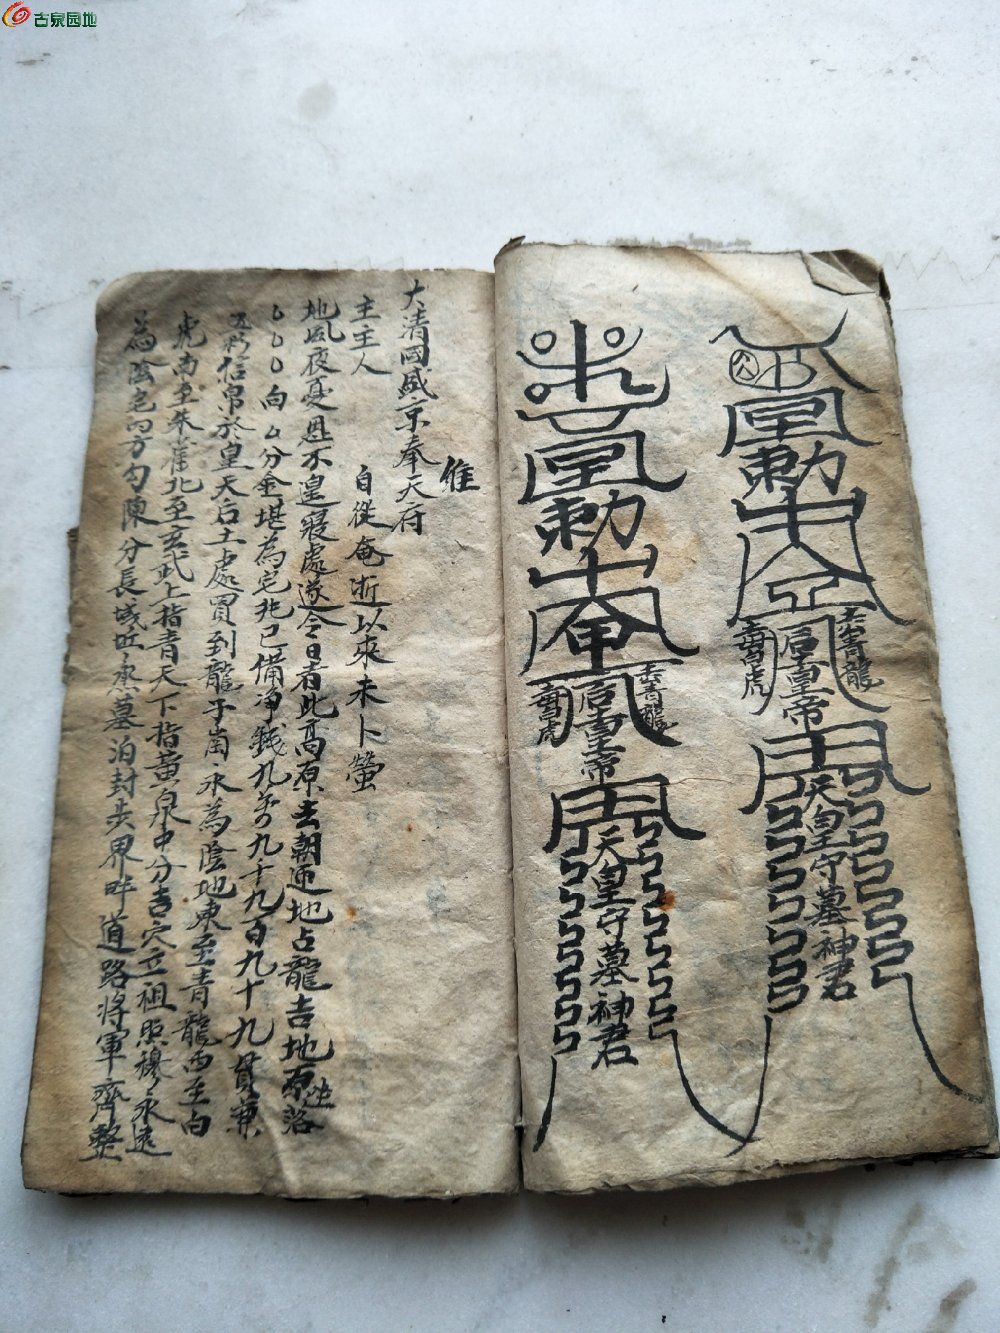 古泉园地
勅
左青龍
右白虎
后皇帝
天皇守墓神君
勅
左青龍
右白虎
后皇帝
天皇守墓神君
維
大清國盛京奉天府
主主人
自従奄逝以來未卜塋
地夙夜憂思不遑寝處遂今日者此髙原去朝迎地占龍吉地原坐落
向 分金堪為宅兆已備净錢九万九千九百九十九貫兼
五彩信帛於皇天后土處買到龍子崗永為陰地東至青龍西至白
虎南至朱雀北至玄武上指青天下指黄泉中分吉穴立祖照穆永遠
為陰宅内方勾陳分長域丘烝墓泊封歩界畔道路将軍齊整